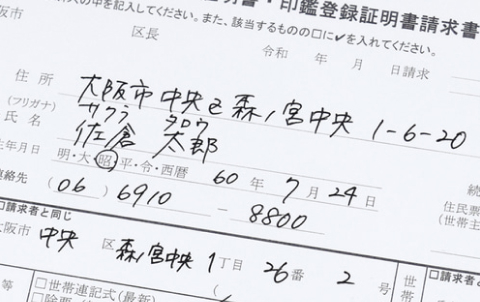 明書・印鑑登録証明書請求書
の中を記入してください。また、該当するものの□に✓を入れてください。
大阪市 区長 令和 年 月 日請求
住所 大阪市中央区森ノ宮中央 1-6-20
(フリガナ) サクラ タロウ
氏名 佐倉 太郎
生年月日 明・大・昭・平・令・西暦 60年 7月 24日
連絡先 (06) 6910-8800
住民票
(世帯主
□請求者と同じ
大阪市 中央 区 森ノ宮中央 1丁目 26番 2号
世帯
□世帯連記式(最新)